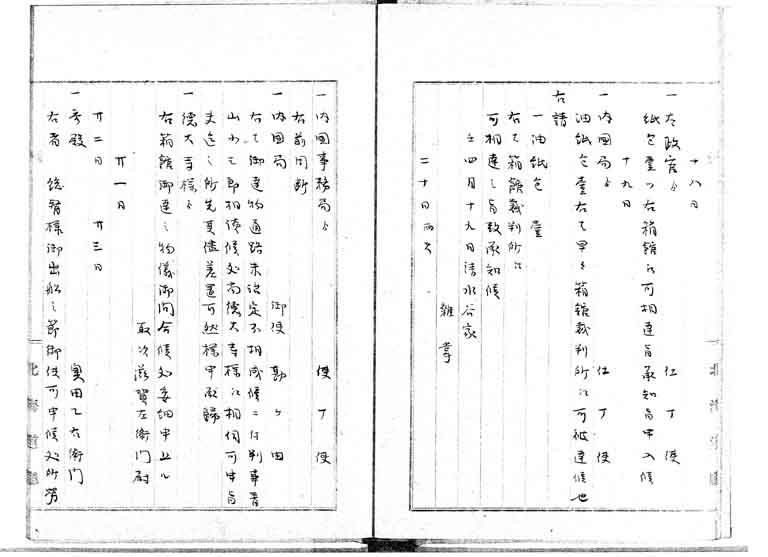 十八日
一太政官ゟ 仕丁使
紙包壹ツ右箱館江可相達旨承知旨申入候
十九日
一内国局ゟ 仕丁使
油紙包壹右者早々箱館裁判所江可被達候也
右請
一油紙包 壹
右者箱館裁判所江
可相達之旨致承知候
四月十九日清水谷家
雑掌
二十日雨天
一内国事務局ゟ 使丁使
右前同断
一内国局 御使
右者御達物通路未決定不相成候ニ付判事青
山小三郎相待候処尚徳大寺様江相伺可申旨
夫迄之所先其儘差置可然様申承帰
一徳大寺様ゟ
右箱館御達之物儀御問合候処委細申上ル
取次滋賀左衛門尉
廿一日
廿二日 廿三日
一参殿 奥田乙右衛門
右者 総督様御出船之節御供可申候処所労